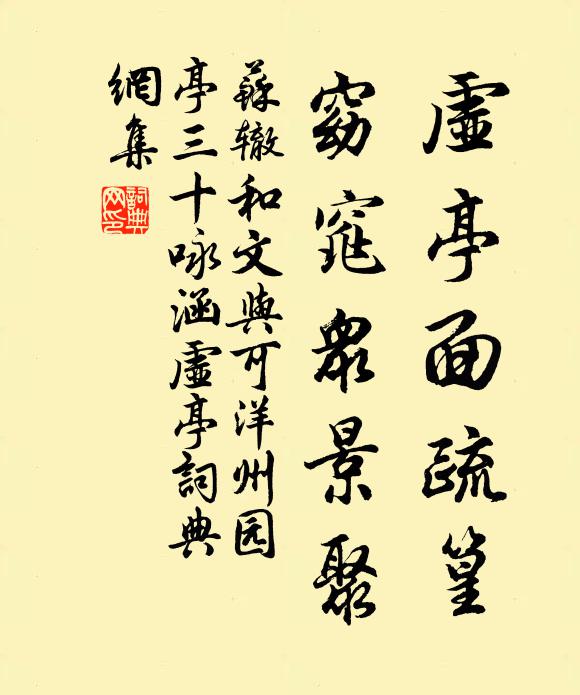 虛亭面疏篁
窈窕眾景聚
蘇辙和文與可洋州园
亭三十咏涵虛亭詞典
網集
詞典網印